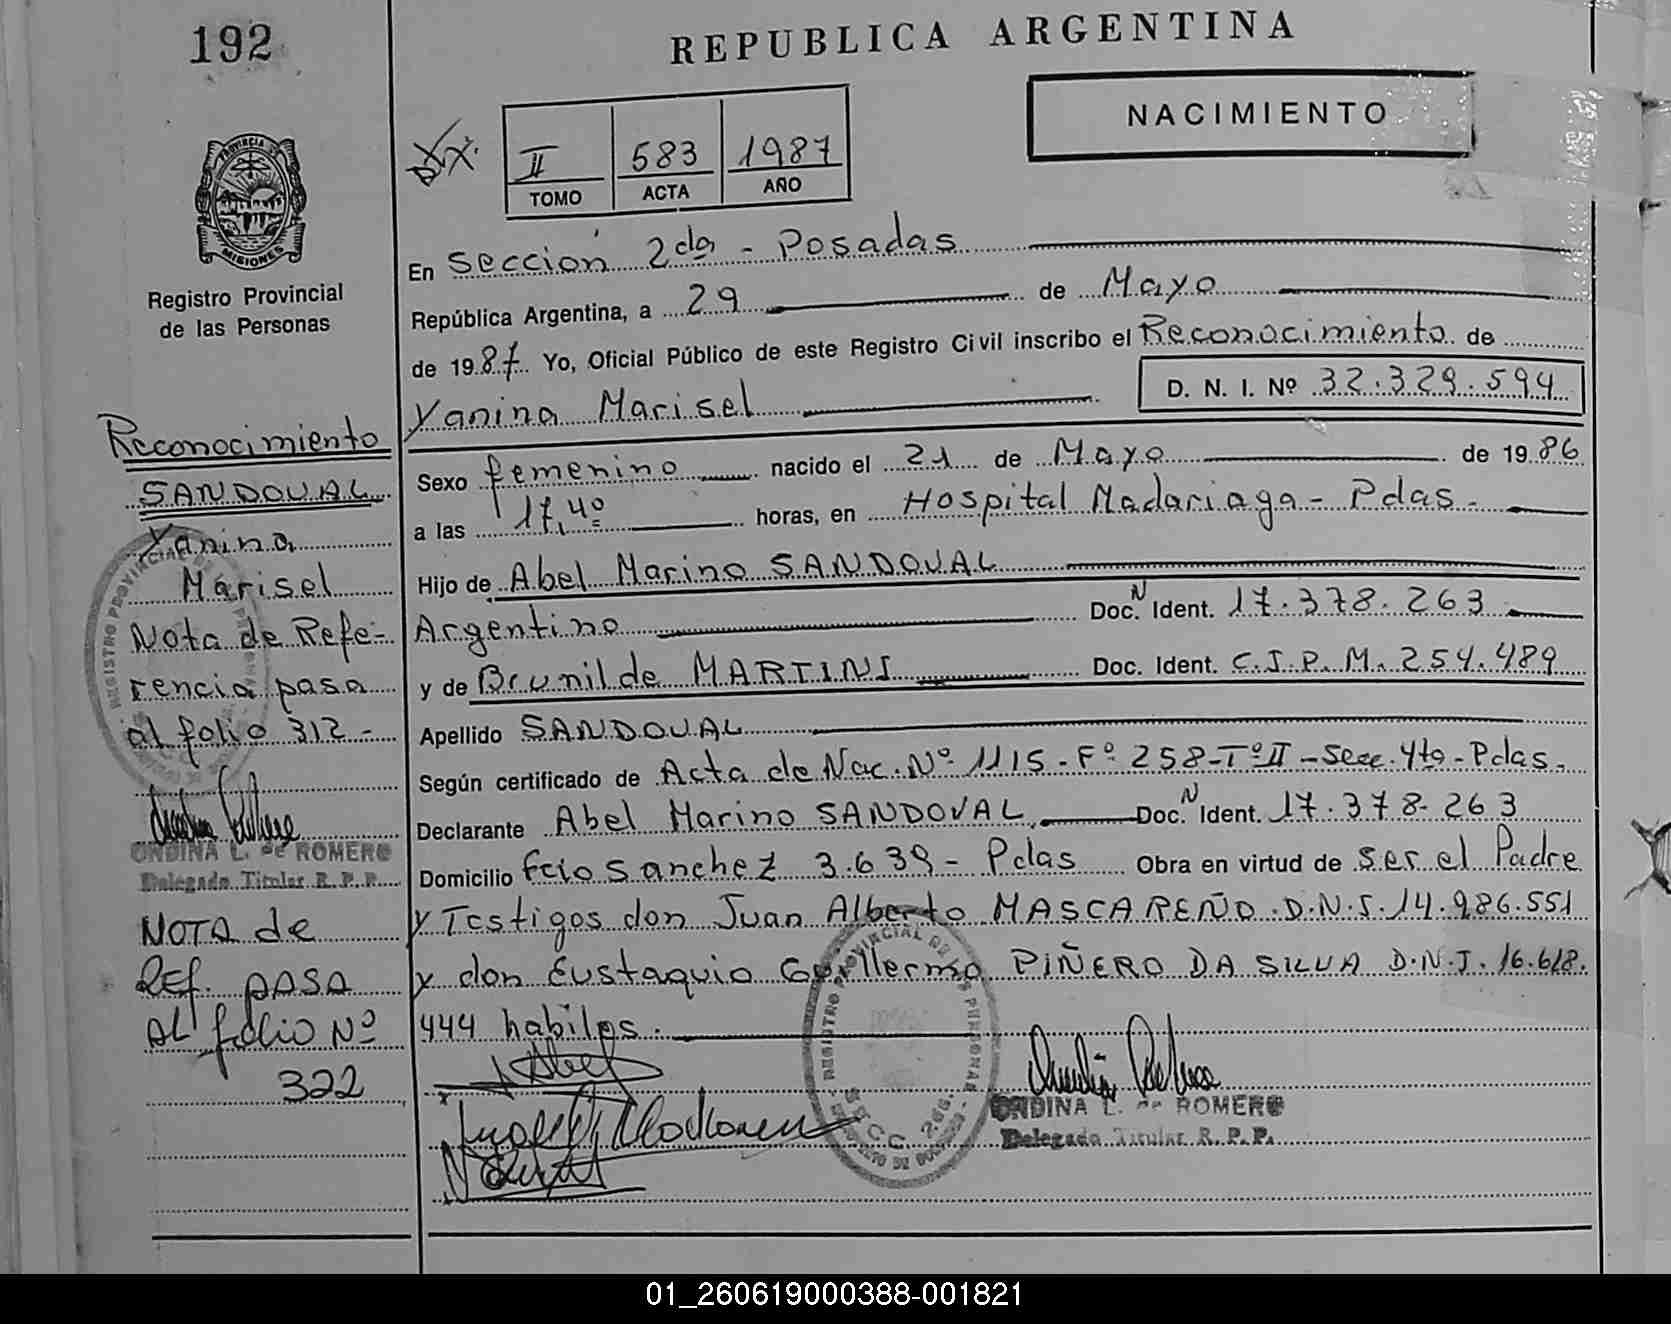 192
REPUBLICA ARGENTINA
NACIMIENTO
II 583 1987
TOMO ACTA AÑO
PROVINCIA DE
MISIONES
Registro Provincial
de las Personas
En Sección 2da - Posadas
República Argentina, a 29 de Mayo
de 1987 Yo, Oficial Público de este Registro Civil inscribo el Reconocimiento de
Yanina Marisel D. N. I. Nº 32.329.594
Sexo femenino nacido el 21 de Mayo de 1986
a las 17,40 horas, en Hospital Madariaga - Pdas.
Hijo de Abel Marino SANDOVAL
Argentino Doc. N Ident. 17.378.263
y de Brunilde MARTINS Doc. Ident. C.I.P.M. 254.489
Apellido SANDOVAL
Según certificado de Acta de Nac. Nº 1115 - Fº 258 - Tº II - Secc. 4ta - Pdas.
Declarante Abel Marino SANDOVAL, Doc. N Ident. 17.378.263
Domicilio fcio sanchez 3.639 - Pdas Obra en virtud de ser el Padre
y Testigos don Juan Alberto MASCAREÑO D.N.I. 14.986.551
y don Eustaquio Guillermo PIÑERO DA SILVA D.N.I. 16.618.
444 habiles.
ORDINA L. de ROMERO
Delegada Titular R. P. P.
Reconocimiento
SANDOVAL
Yanina
Marisel
Nota de Refe-
rencia pasa
al folio 312 -
ORDINA L. de ROMERO
Delegada Titular R. P. P.
NOTA de
Ref. PASA
AL folio Nº
322
01_260619000388-001821